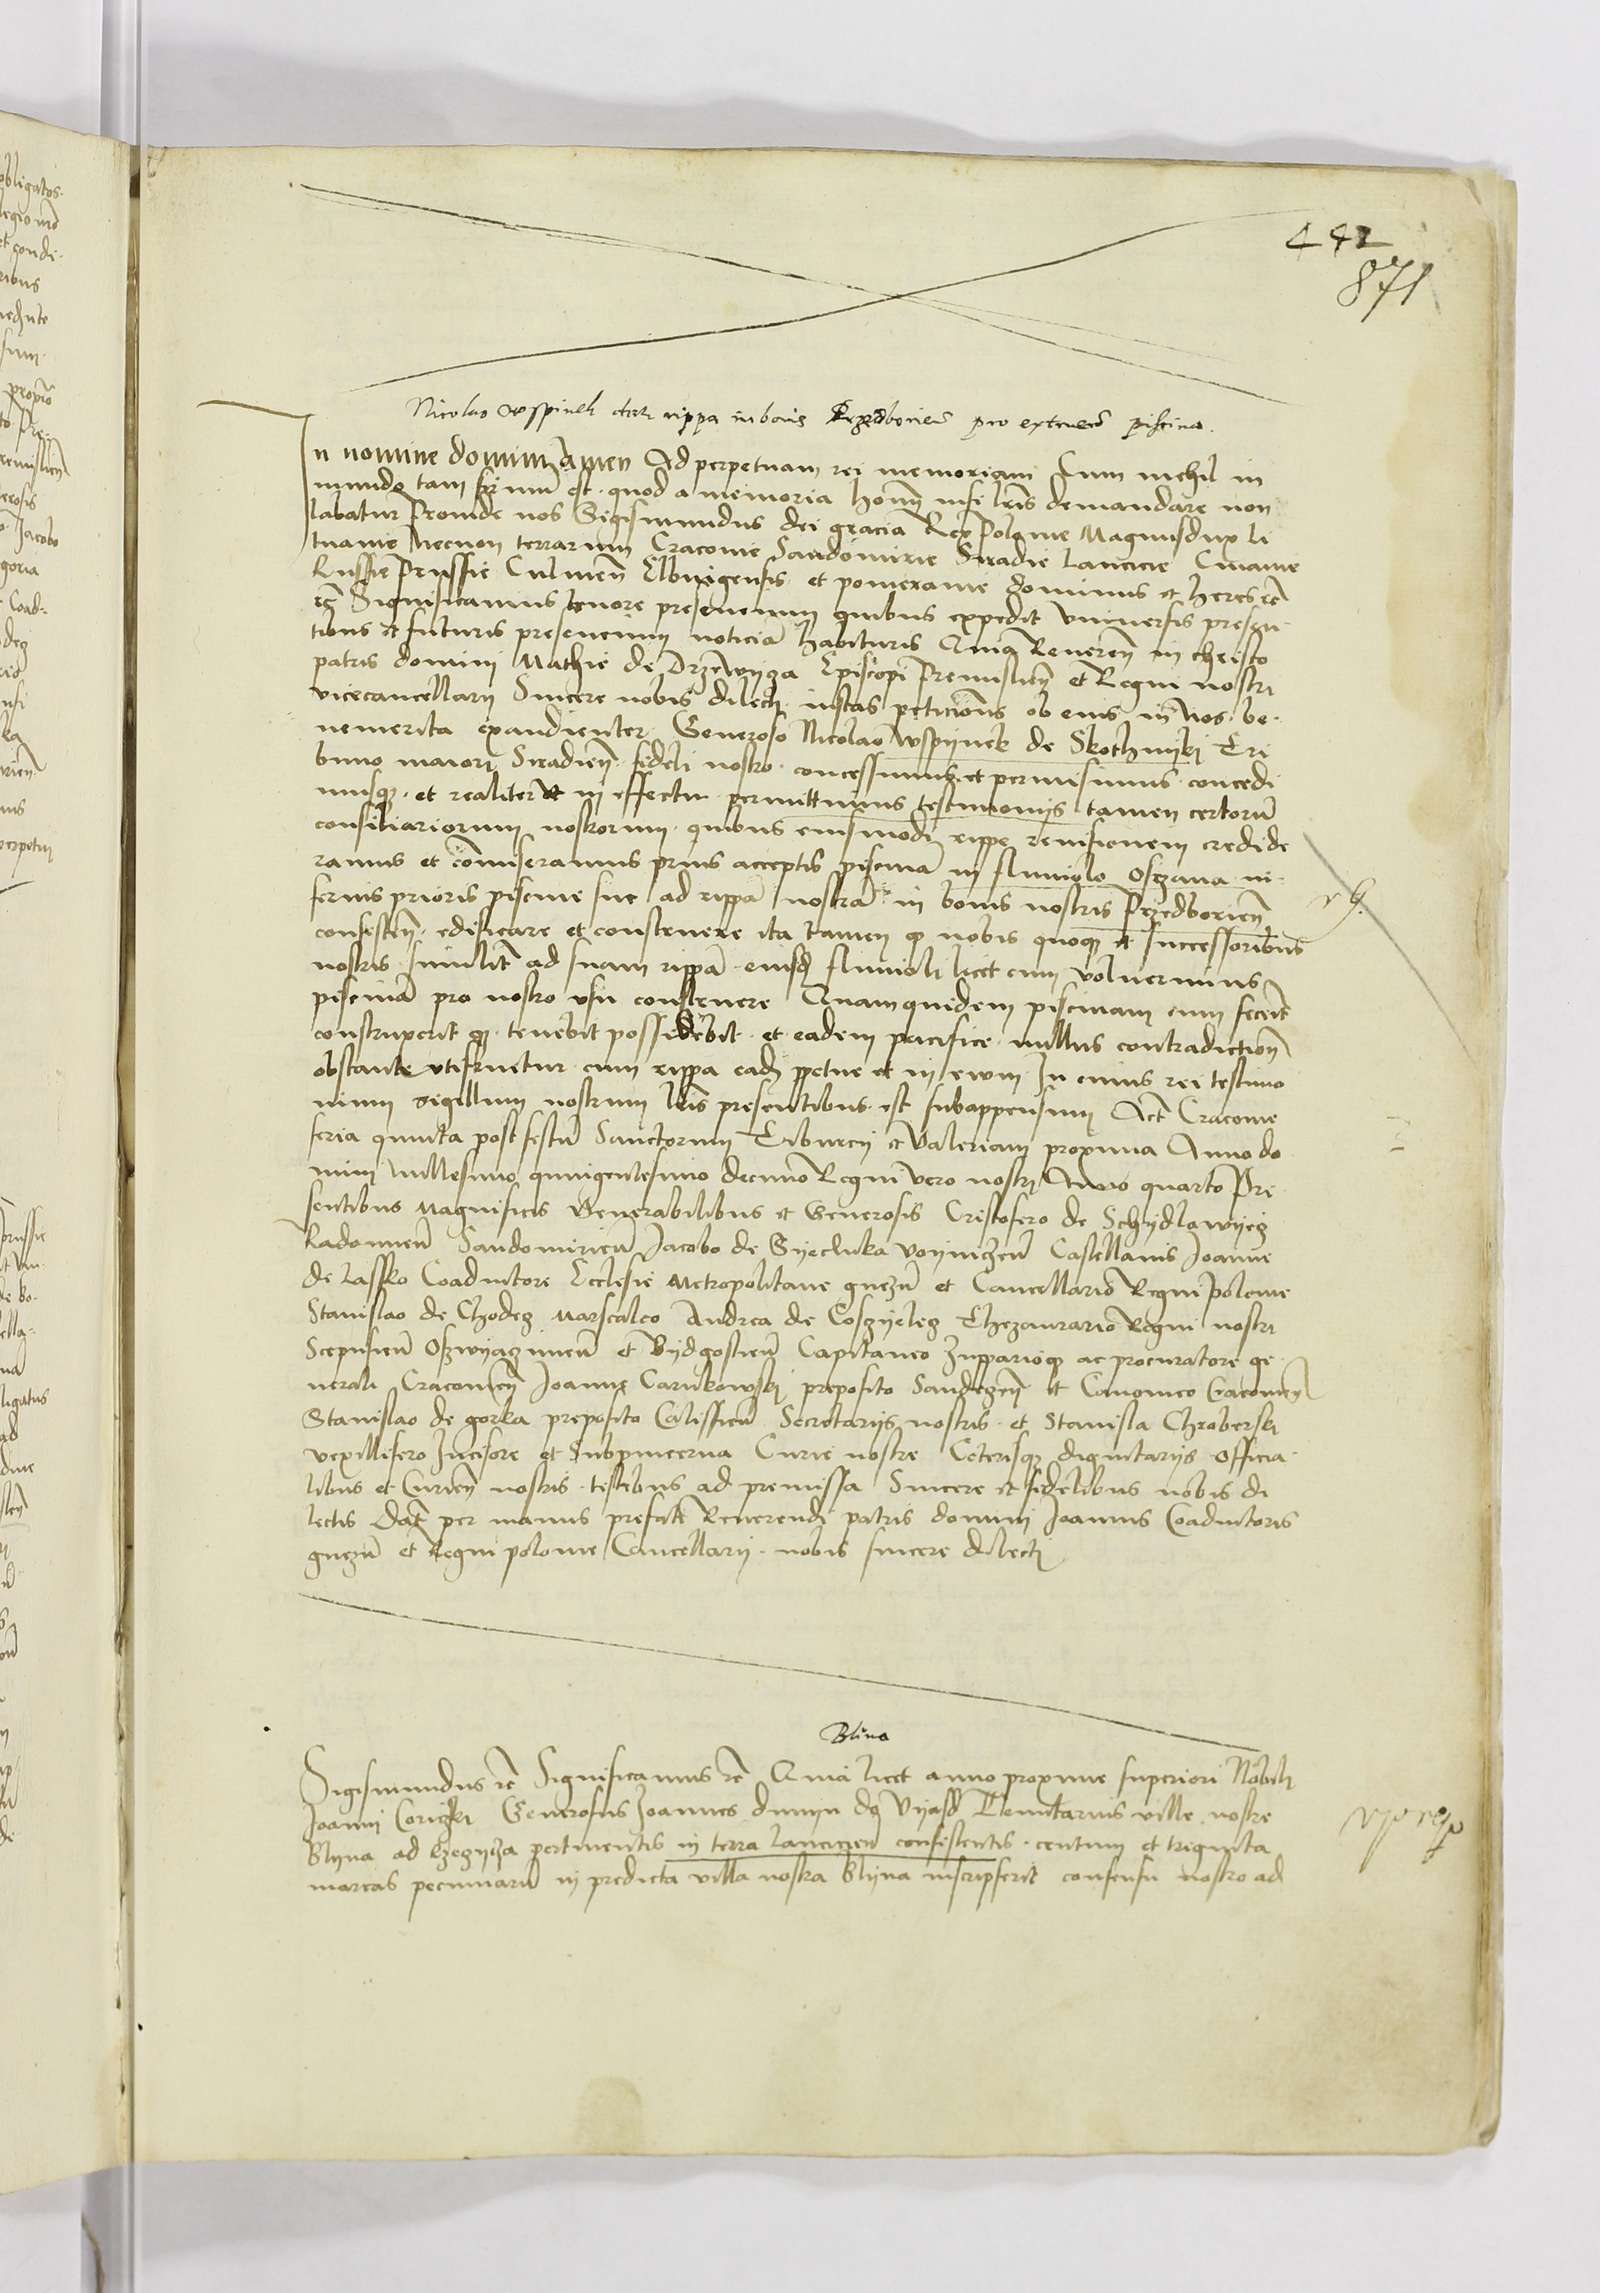 442
871
Nicolao Wspinek datur rippa in bonis Przedborien pro extruen piscina.
In nomine domini Amen Ad perpetuam rei memoriam Cum nichil in
mundo tam firmu est quod a memoria hominu nisi lris demandare non
labatur Proinde nos Sigismundus dei gracia Rex Polonie Magnusdux li
tuanie Necnon terrarum Cracovie Sandomirie Siradie Lancicie Cuiavie
Russie Prussie Culmen Elbingensis et pomeranie dominus et heres etc
etc Significamus tenore presencium quibus expedit Universis presen
tibus et futuris presencium noticia habituris Quia Reveren in christo
patris domini Mathie de Drzewycza Episcopi Premislien et Regni nostri
vicecancellarij Sincere nobis dilecti iustas peticiones ob eius in Nos be
nemerita exaudienter Generoso Nicolao Wspijnek de Skothnyki Tri
buno maiori Siradien fideli nostro concessimus et permisimus concedi
musq et realiter et in effectu permittimus testimonijs tamen certoru
consiliariorum nostrorum quibus eiusmodi rippe revisionem credide
ramus et comiseramus prius acceptis piscina in fluviolo Osczana in
ferius prioris piscine sue ad rippa nostra in bonis nostris Przedborien
consisten edificare et construere ita tamen q nobis quoq et successoribus
nostris similit ad suam rippa eiusd fluvioli licet cum voluerimus
piscina pro nostro usu construere Quamquidem piscinam cum fecerit
construxerit q tenebit possidebit et eadem pacifice nullius contradiction
obstante utifruetur cum rippa ead ppetue et in evum In cuius rei testimo
nium sigillum nostrum lris presentibus est subappensum Act Cracovie
feria quinta post festu Sanctorum Tiburcij et Valeriani proxima Anno do
mini Millesimo quingentesimo decimo Regni vero nostri Anno quarto Pre
sentibus Magnificis Venerabilibus et Generosis Cristofero de Schydlowijecz
Radomien Sandomirien Jacobo de Syecluka voyniczen Castellanis Joanne
de Lassko Coadiutore Ecclesie Metropolitane gnezn et Cancellario Regni Polonie
Stanislao de Chodecz Marscalco Andrea de Cosczyelecz Thezaurario Regni nostri
Scepusien Oszwyaczimen et Bydgostien Capitaneo Zuppario q ac procuratore ge
nerali Cracovien Joanne Carnkowski preposito Sandeczen et Canonico Cracovien
Stanislao de gorka preposito Calissien Secretarijs nostris et Stanisla Chroberski
vexillifero Incisore et Subpincerna Curie nostre Ceterisq dignitarijs officia
libus et Curien nostris testibus ad premissa Sincere et fidelibus nobis di
lectis Dat per manus prefati Reverendi patris domini Joannis Coadiutoris
gnezn et Regni polonie Cancellarij nobis sincere dilecti
Blina
Sigismundus etc Significamus etc Quia licet anno proxime superiori Nobili
Joanni Coriczki Generosus Joannes dunyn de Vyasd Tenutarius ville nostre
Blyna ad pertinentis in terra lancicien consistentis centum et triginta
marcas pecuniaru in predicta villa nostra Blyna inscripserit consensu nostro ad